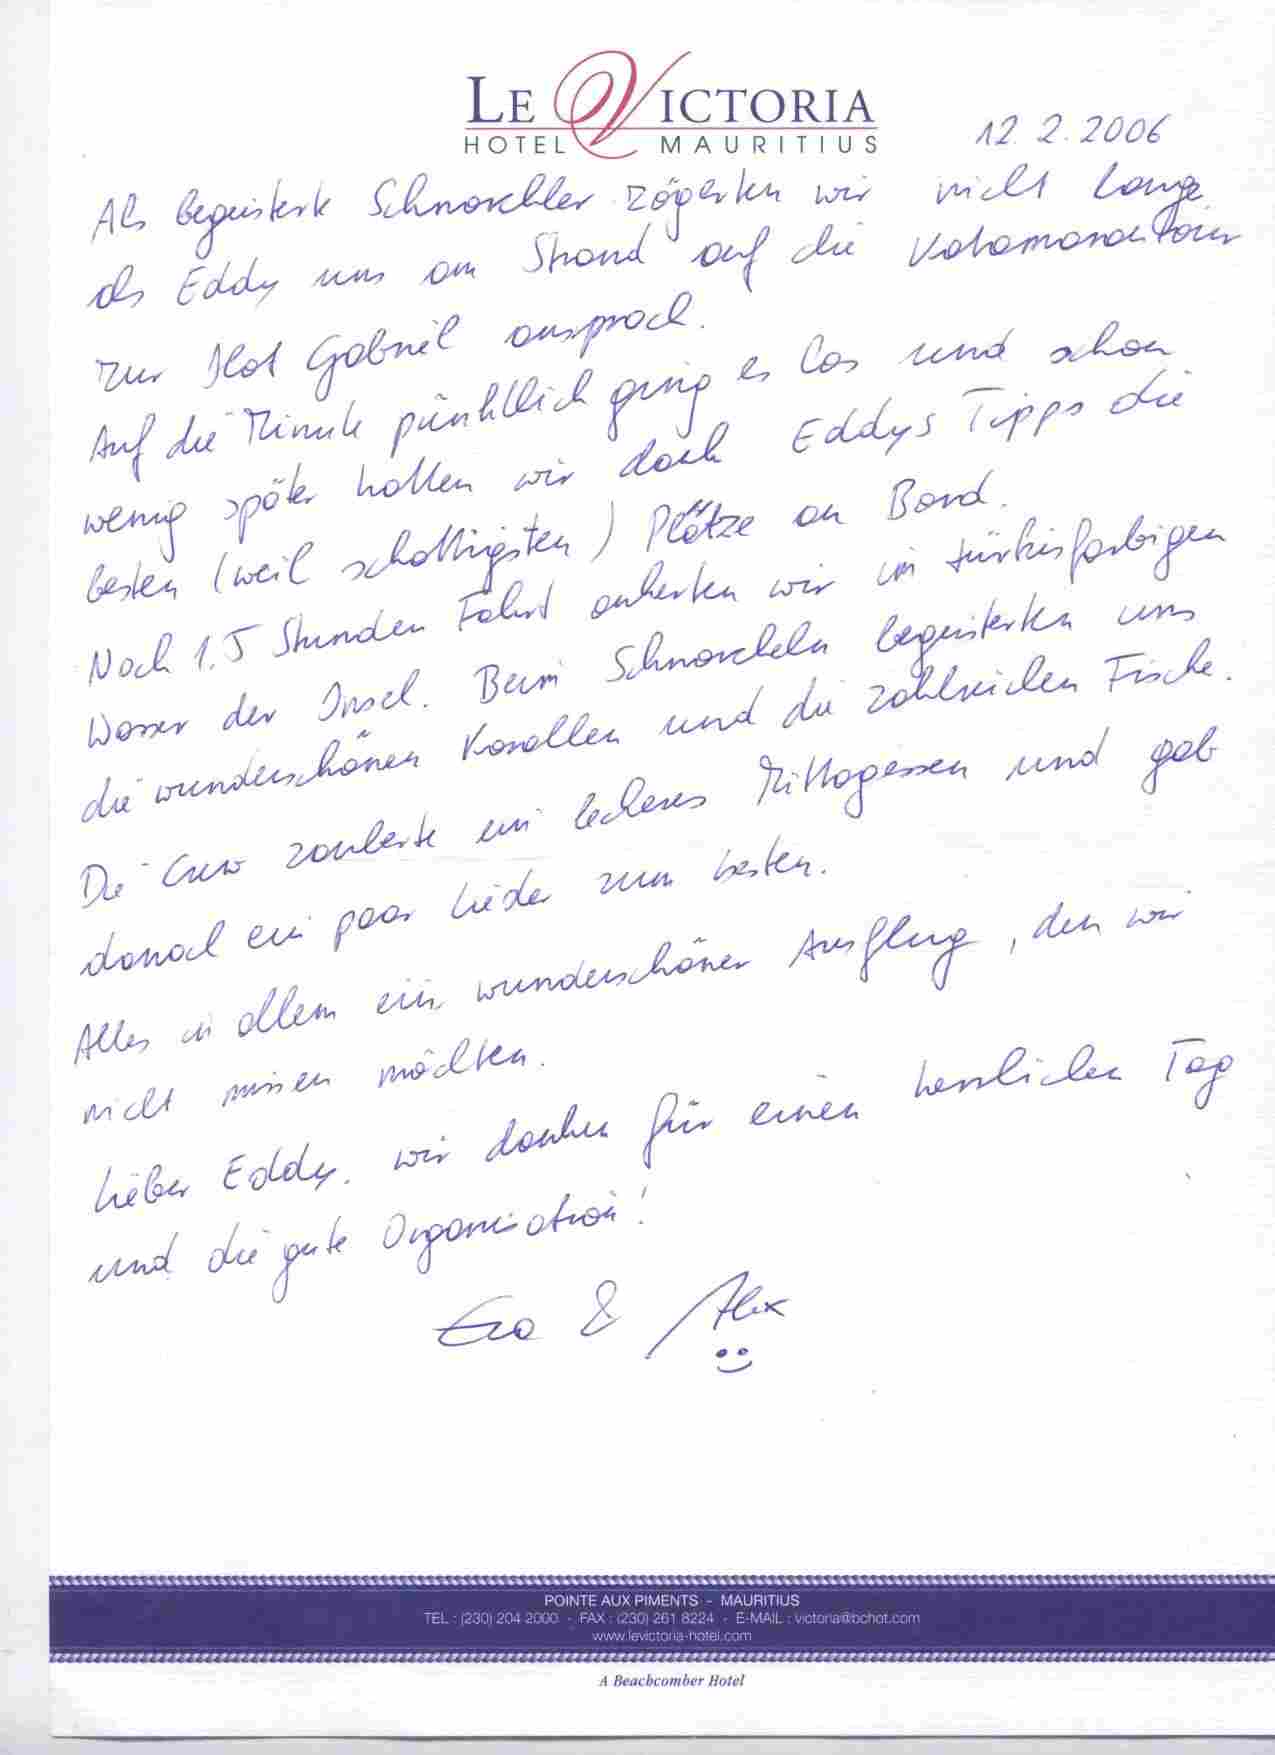 LE VICTORIA
HOTEL MAURITIUS
12.2.2006
Als begeisterte Schnorchler zögerten wir nicht lange
als Eddy uns am Strand auf die Katamarantour
zur Ilot Gabriel ansprach.
Auf die Minute pünktlich ging es los und schon
wenig später hatten wir dank Eddys Tipps die
besten (weil schattigsten) Plätze an Bord.
Nach 1,5 Stunden Fahrt ankerten wir im türkisfarbigen
Wasser der Insel. Beim Schnorcheln begeisterten uns
die wunderschönen Korallen und die zahlreichen Fische.
Die Crew zauberte ein leckeres Mittagessen und gab
danach ein paar Lieder zum besten.
Alles in allem ein wunderschöner Ausflug, den wir
nicht missen möchten.
Lieber Eddy, wir danken für einen herrlichen Tag
und die gute Organisation!
Eva & Alex
POINTE AUX PIMENTS - MAURITIUS
TEL : (230) 204 2000 - FAX : (230) 261 8224 - E-MAIL : victoria@bchot.com
www.levictoria-hotel.com
A Beachcomber Hotel